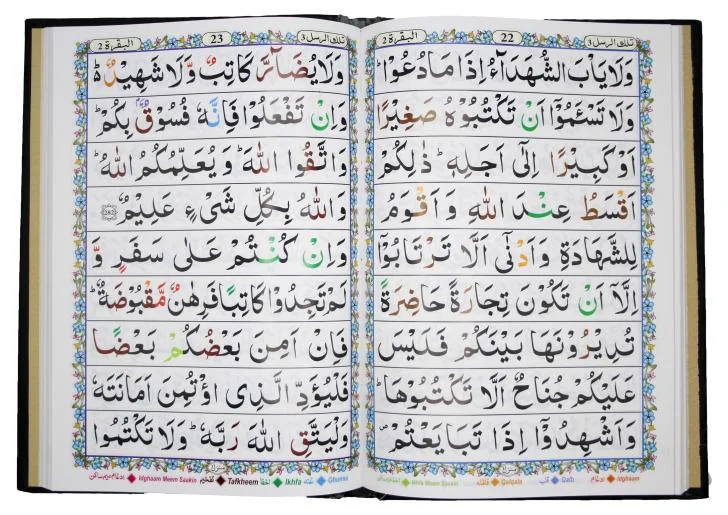 تلك الرسل ٣ 22 البقرة ٢
وَلَا يَاْبَ الشُّهَدَآءُ اِذَا مَا دُعُوْا ؕ
وَلَا تَسْـَٔمُوْۤا اَنْ تَكْتُبُوْهُ صَغِيْرًا
اَوْ كَبِيْرًا اِلٰٓى اَجَلِهٖ ؕ ذٰلِكُمْ
اَقْسَطُ عِنْدَ اللّٰهِ وَ اَقْوَمُ
لِلشَّهَادَةِ وَ اَدْنٰۤى اَلَّا تَرْتَابُوْۤا
اِلَّاۤ اَنْ تَكُوْنَ تِجَارَةً حَاضِرَةً
تُدِيْرُوْنَهَا بَيْنَكُمْ فَلَيْسَ
عَلَيْكُمْ جُنَاحٌ اَلَّا تَكْتُبُوْهَا ؕ
وَ اَشْهِدُوْۤا اِذَا تَبَايَعْتُمْ ۪
Ikhfa Meem Saakin Qalqala قلقلہ Qalb قلب Idghaam ادغام
تلك الرسل ٣ 23 البقرة ٢
وَلَا يُضَآرَّ كَاتِبٌ وَّلَا شَهِيْدٌ ؕ۬
وَ اِنْ تَفْعَلُوْا فَاِنَّهٗ فُسُوْقٌۢ بِكُمْ ؕ
وَ اتَّقُوا اللّٰهَ ؕ وَ يُعَلِّمُكُمُ اللّٰهُ ؕ
وَ اللّٰهُ بِكُلِّ شَىْءٍ عَلِيْمٌ 282
وَ اِنْ كُنْتُمْ عَلٰى سَفَرٍ وَّ
لَمْ تَجِدُوْا كَاتِبًا فَرِهٰنٌ مَّقْبُوْضَةٌ ؕ
فَاِنْ اَمِنَ بَعْضُكُمْ بَعْضًا
فَلْيُؤَدِّ الَّذِى اؤْتُمِنَ اَمَانَتَهٗ
وَلْيَتَّقِ اللّٰهَ رَبَّهٗ ؕ وَلَا تَكْتُمُوا
Idghaam Meem Saakin Tafkheem تفخیم Ikhfa اخفا Ghunna غنہ